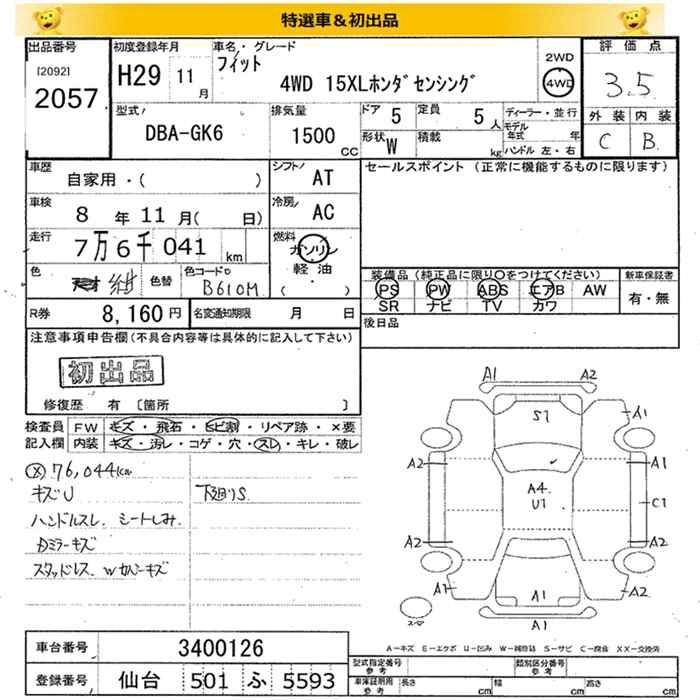 特選車＆初出品
出品番号 初度登録年月 車名・グレード 2WD 評価点
[2092] H29 11 フィット 4WD 3.5
2057 月 4WD 15XLホンダセンシング
型式 排気量 ドア 5 定員 5人 ディーラー・並行 外装 内装
DBA-GK6 1500 CC 形状 W 積載 kg モデル年式 年 C B
ハンドル 左・右
車歴 シフト AT セールスポイント (正常に機能するものに限ります)
自家用・( )
車検 冷房 AC
8 年 11 月( 日)
走行 燃料 ガソリン
7万6千041 km 軽油
( )
色 紺 色替 色コードNo B610M
装備品 (純正品に限り○をつけてください) 新車保証書
PS PW ABS エアB AW 有・無
SR ナビ TV カワ
R券 8,160 円 名変通知期限 月 日 後日品
注意事項申告欄(不具合内容等は具体的に記入して下さい)
初出品
修復歴 有 [箇所 ]
検査員 FW キズ・飛石・ヒビ割・リペア跡・×要
記入欄 内装 キズ・汚レ・コゲ・穴・スレ・キレ・破レ
Ⓧ 76,044km
キズU 下廻りS
ハンドルスレ シートしみ
Dミラーキズ
スタッドレス wカバーキズ
A1 A2
S1 A1
A2 A1
A4
U1 C1
A2 A2
A1 A1 A2
A1
A－キズ E－エクボ U－凹み W－補修跡 S－サビ C－腐食 XX－交換済
車台番号 3400126
登録番号 仙台 501 ふ 5593
型式指定番号 参考 類別区分番号 参考
車庫証明用 参考 長さ cm 幅 cm 高さ cm